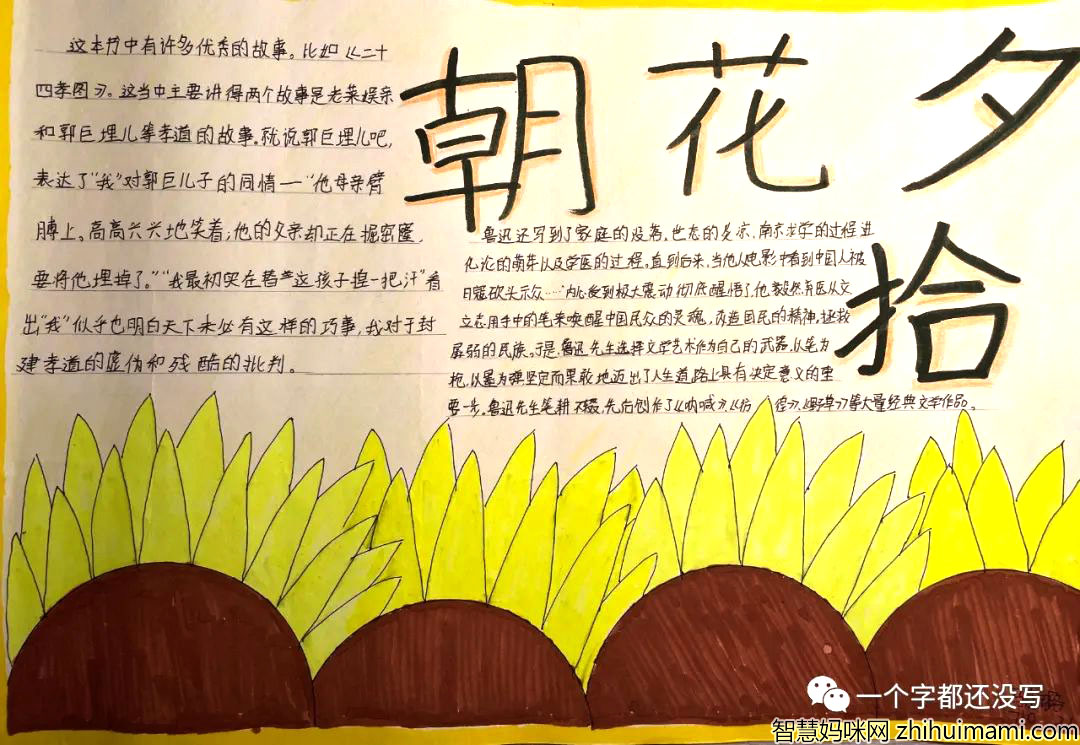 朝花夕
拾
这本书中有许多优秀的故事。比如《二十
四孝图》。这当中主要讲得两个故事是老莱娱亲
和郭巨埋儿奉孝道的故事。就说郭巨埋儿吧,
表达了“我”对郭巨儿子的同情一“他母亲臂
膊上。高高兴兴地笑着;他的父亲却正在掘窟窿,
要将他埋掉了。”“我最初实在替这孩子捏一把汗”看
出“我”似乎也明白天下未必有这样的巧事,我对于封
建孝道的虚伪和残酷的批判。
鲁迅还写到了家庭的没落,世态的炎凉、南京求学的过程、进
化论的萌芽以及学医的过程。直到后来,当他从电影中看到中国人被
日寇砍头示众……内心受到极大震动彻底醒悟了,他毅然弃医从文
立志用手中的笔来唤醒中国民众的灵魂,改造国民的精神,拯救
孱弱的民族。于是,鲁迅先生选择文学艺术作为自己的武器,以笔为
枪,以墨为弹坚定而果敢地迈出了人生道路上具有决定意义的重
要一步。鲁迅先生笔耕不辍,先后创作了《呐喊》、《彷徨》、《野草》等大量经典文学作品。
一个字都还没写
智慧妈咪网 zhihuimami.com